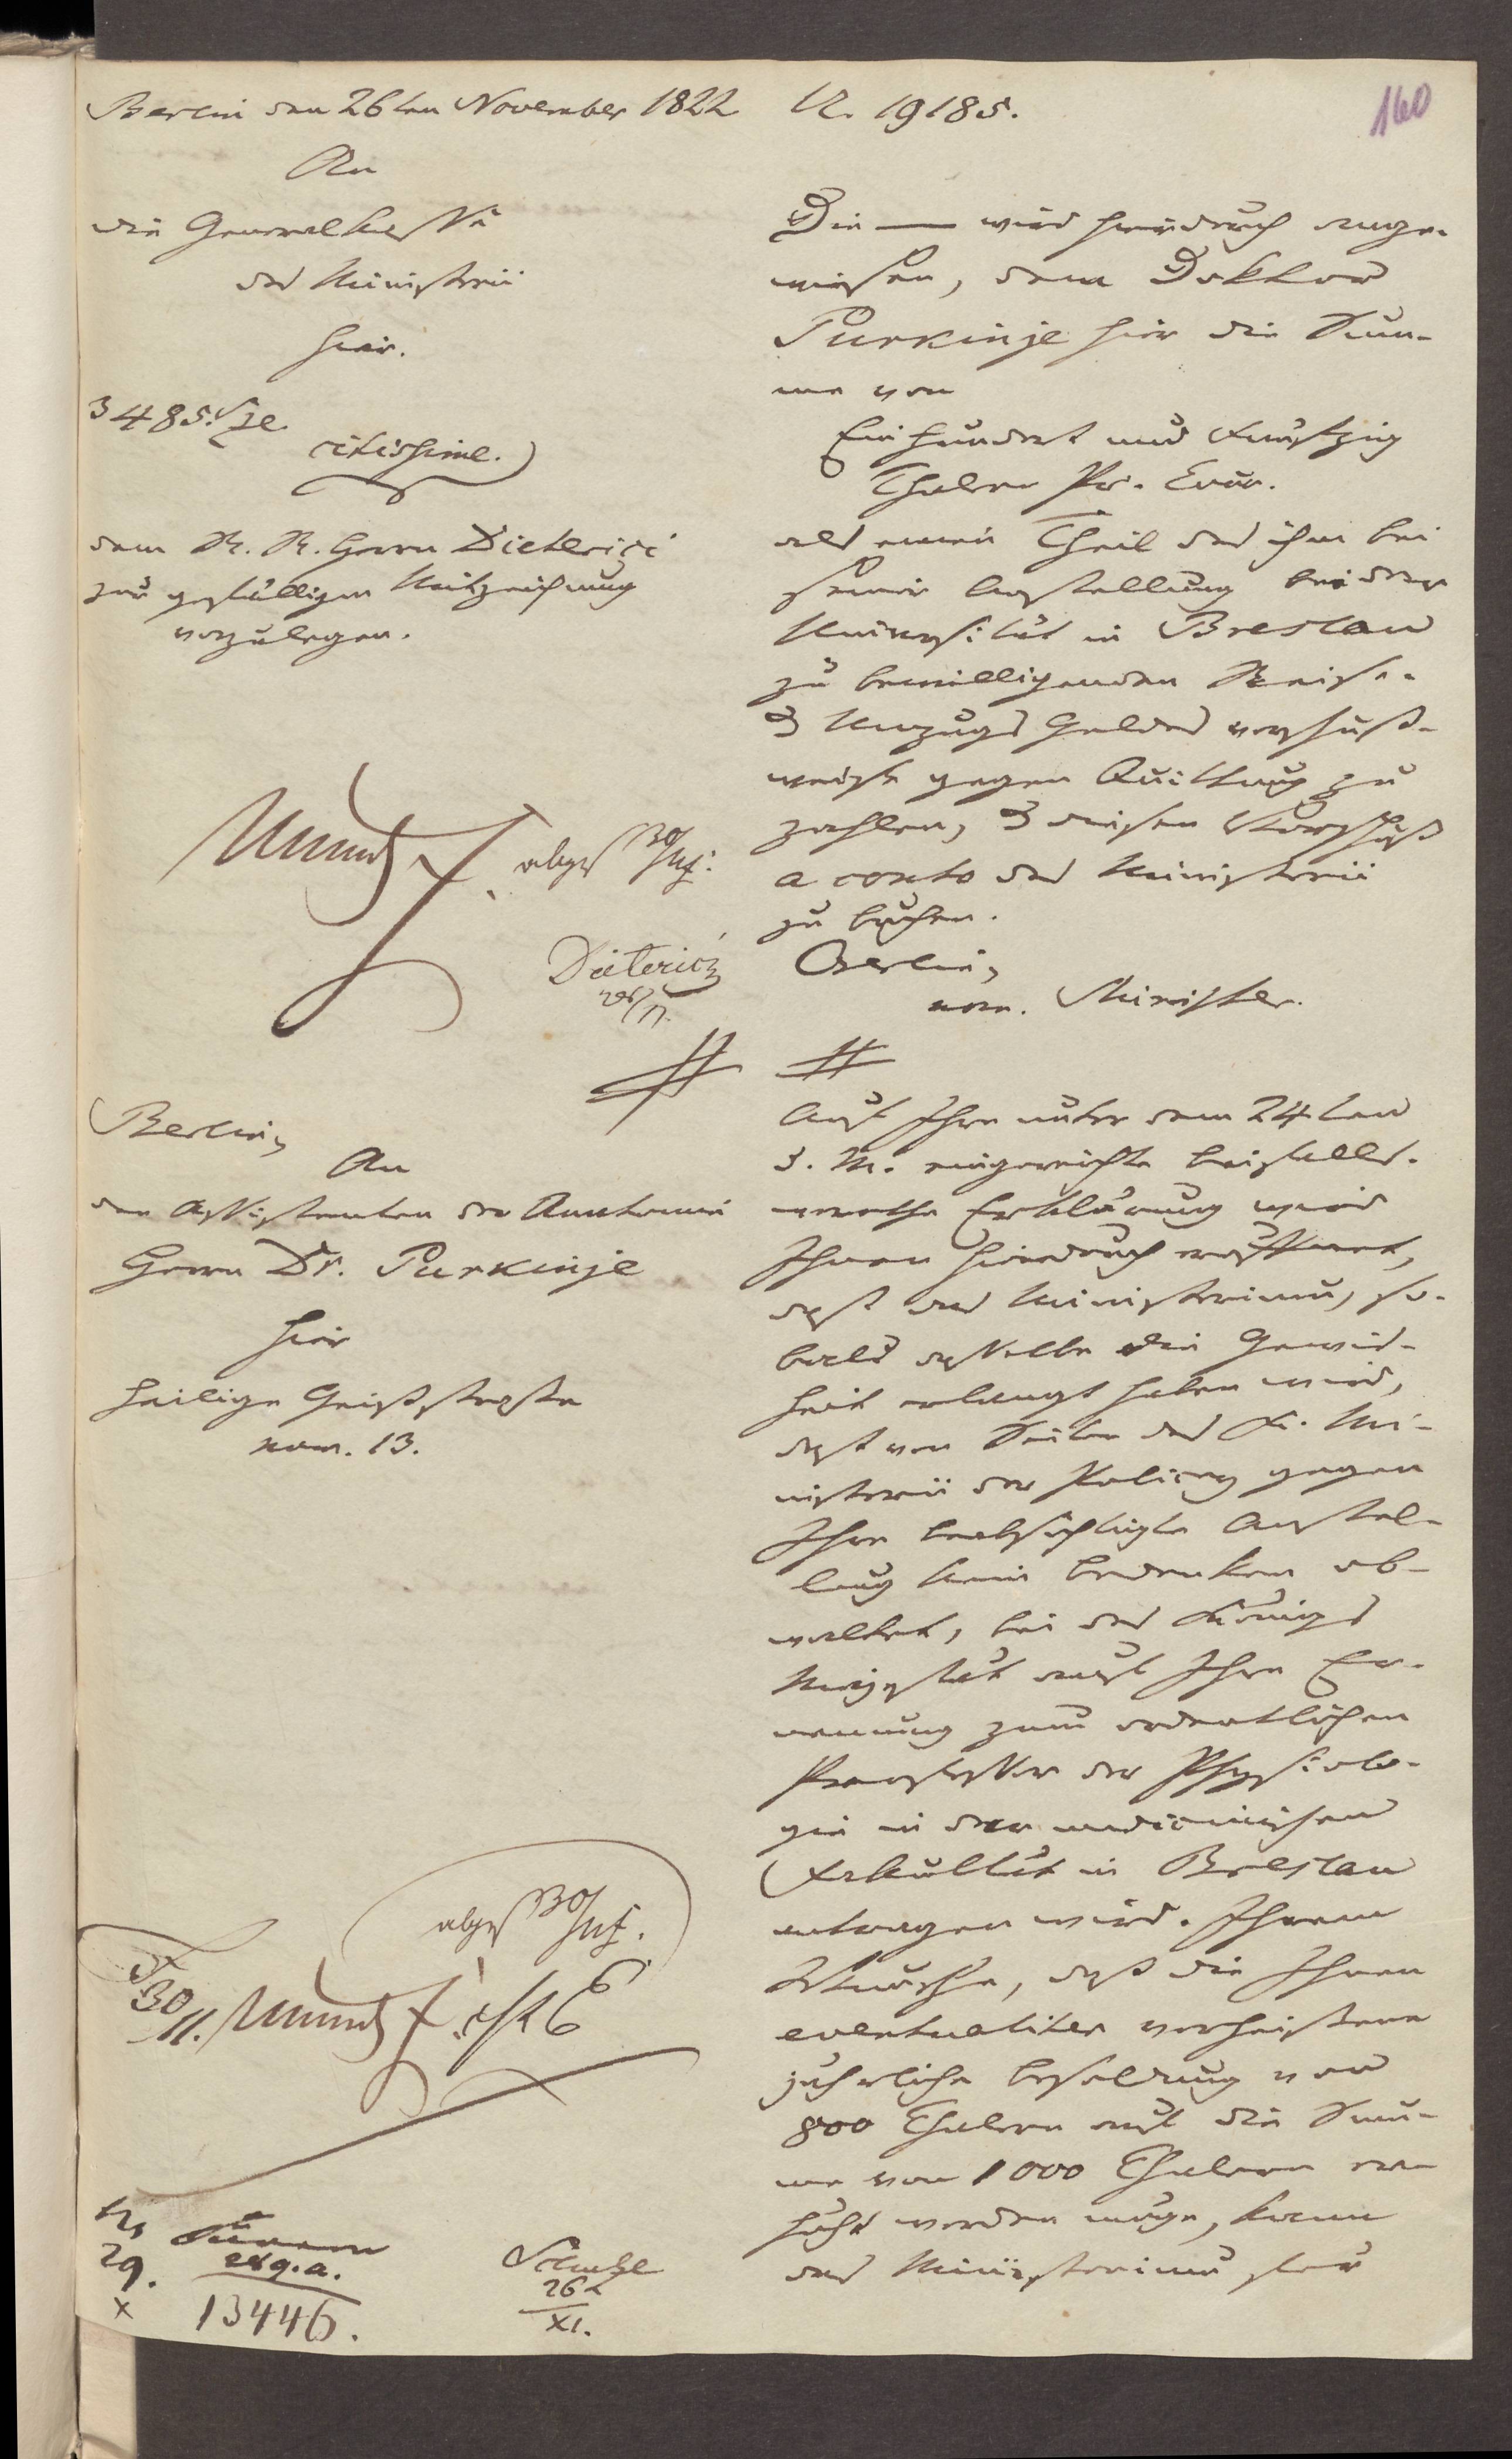 Berlin den 26ten November 1822
U. 19185.
160
An
die Generalkasse
des Ministerii
hier.
3485.
citissime.)
dem R. R. Herrn Dieterici
zur gefälligen Mitzeichnung
vorzulegen.
Die — wird hierdurch ange-
wiesen, dem Doktor
Purkinje hier die Sum-
me von
Ein hundert und Funfzig
Thalern Pr. Cour.
als einen Theil des ihm bei
seiner Anstellung bei der
Universität in Breslau
zu bewilligenden Reise-
& Umzugs Geldes vorschuß-
weise gegen Quittung zu
zahlen, & diesen Vorschuß
a conto des Ministerii
zu buchen.
Berlin,
nom. Minister.
abges 30/
Dieterici
28/11.
#
#
Berlin,
An
den Assistenten der Anatomie
Herrn Dr. Purkinje
hier
heilige Geiststraße
nom. 13.
Auf Ihre unter dem 24ten
d. M. eingereichte beifalls-
werthe Erklärung wird
Ihnen hierdurch eröffnet,
daß das Ministerium, so-
bald dasselbe die Gewis-
heit erlangt haben wird,
daß von Seiten des K. Mi-
nisterii der Policey gegen
Ihre beabsichtigte Anstel-
lung kein Bedenken ob-
waltet, bei des Königs
Majestät auf Ihre Er-
nennung zum ordentlichen
Professor der Physiolo-
gie in der medicinischen
Fakultät in Breslau
antragen wird. Ihrem
Wunsche, daß die Ihnen
eventualiter verheißene
jährliche Besoldung von
800 Thalern auf die Sum-
me von 1000 Thalern er-
höht werden möge, kann
das Ministerium für
abges 30/
30/11.
29.
x
ex q. a.
13446.
Schulze
26
XI.